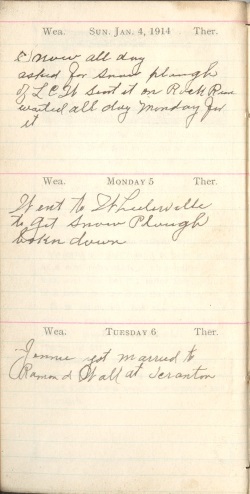 Wea. SUN. JAN. 4, 1914 Ther.
Snow all day
asked for Snow plough
of L C W Sent it on Rock Run
waited all day Monday for
it
Wea. MONDAY 5 Ther.
Went to Wheelerville
to get Snow Plough
down
Wea. TUESDAY 6 Ther.
Jennie got married to
Ramond Wall at Scranton